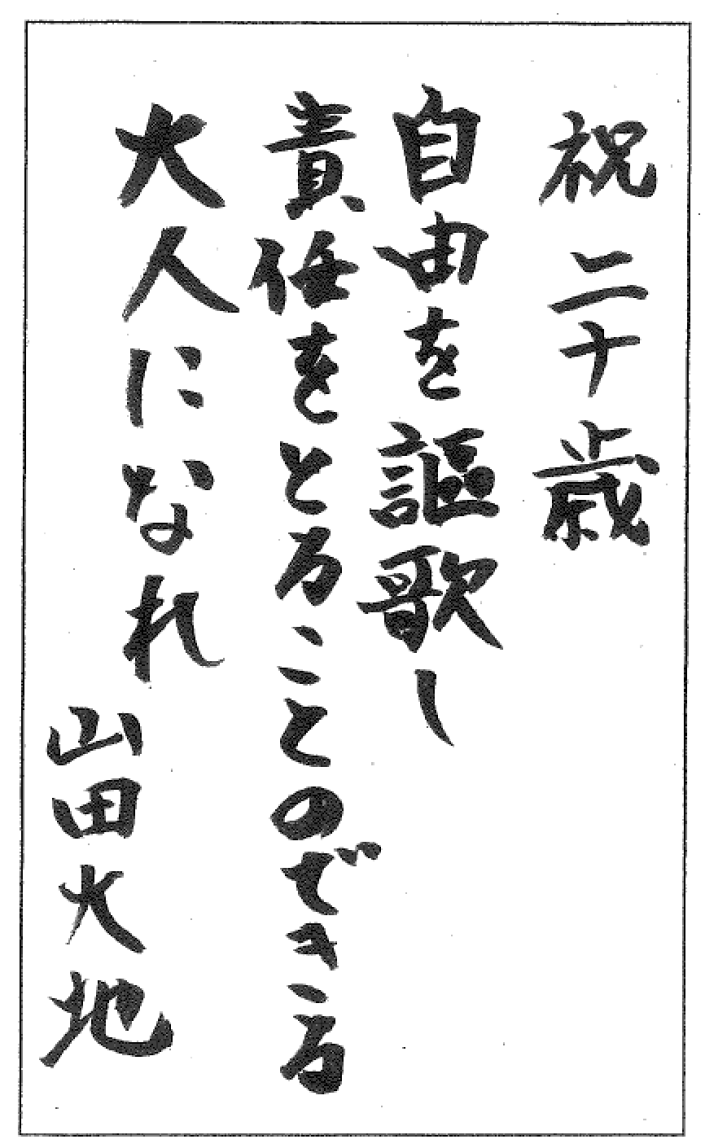 祝 二十歳
自由を謳歌し
責任をとることのできる
大人になれ
山田大地